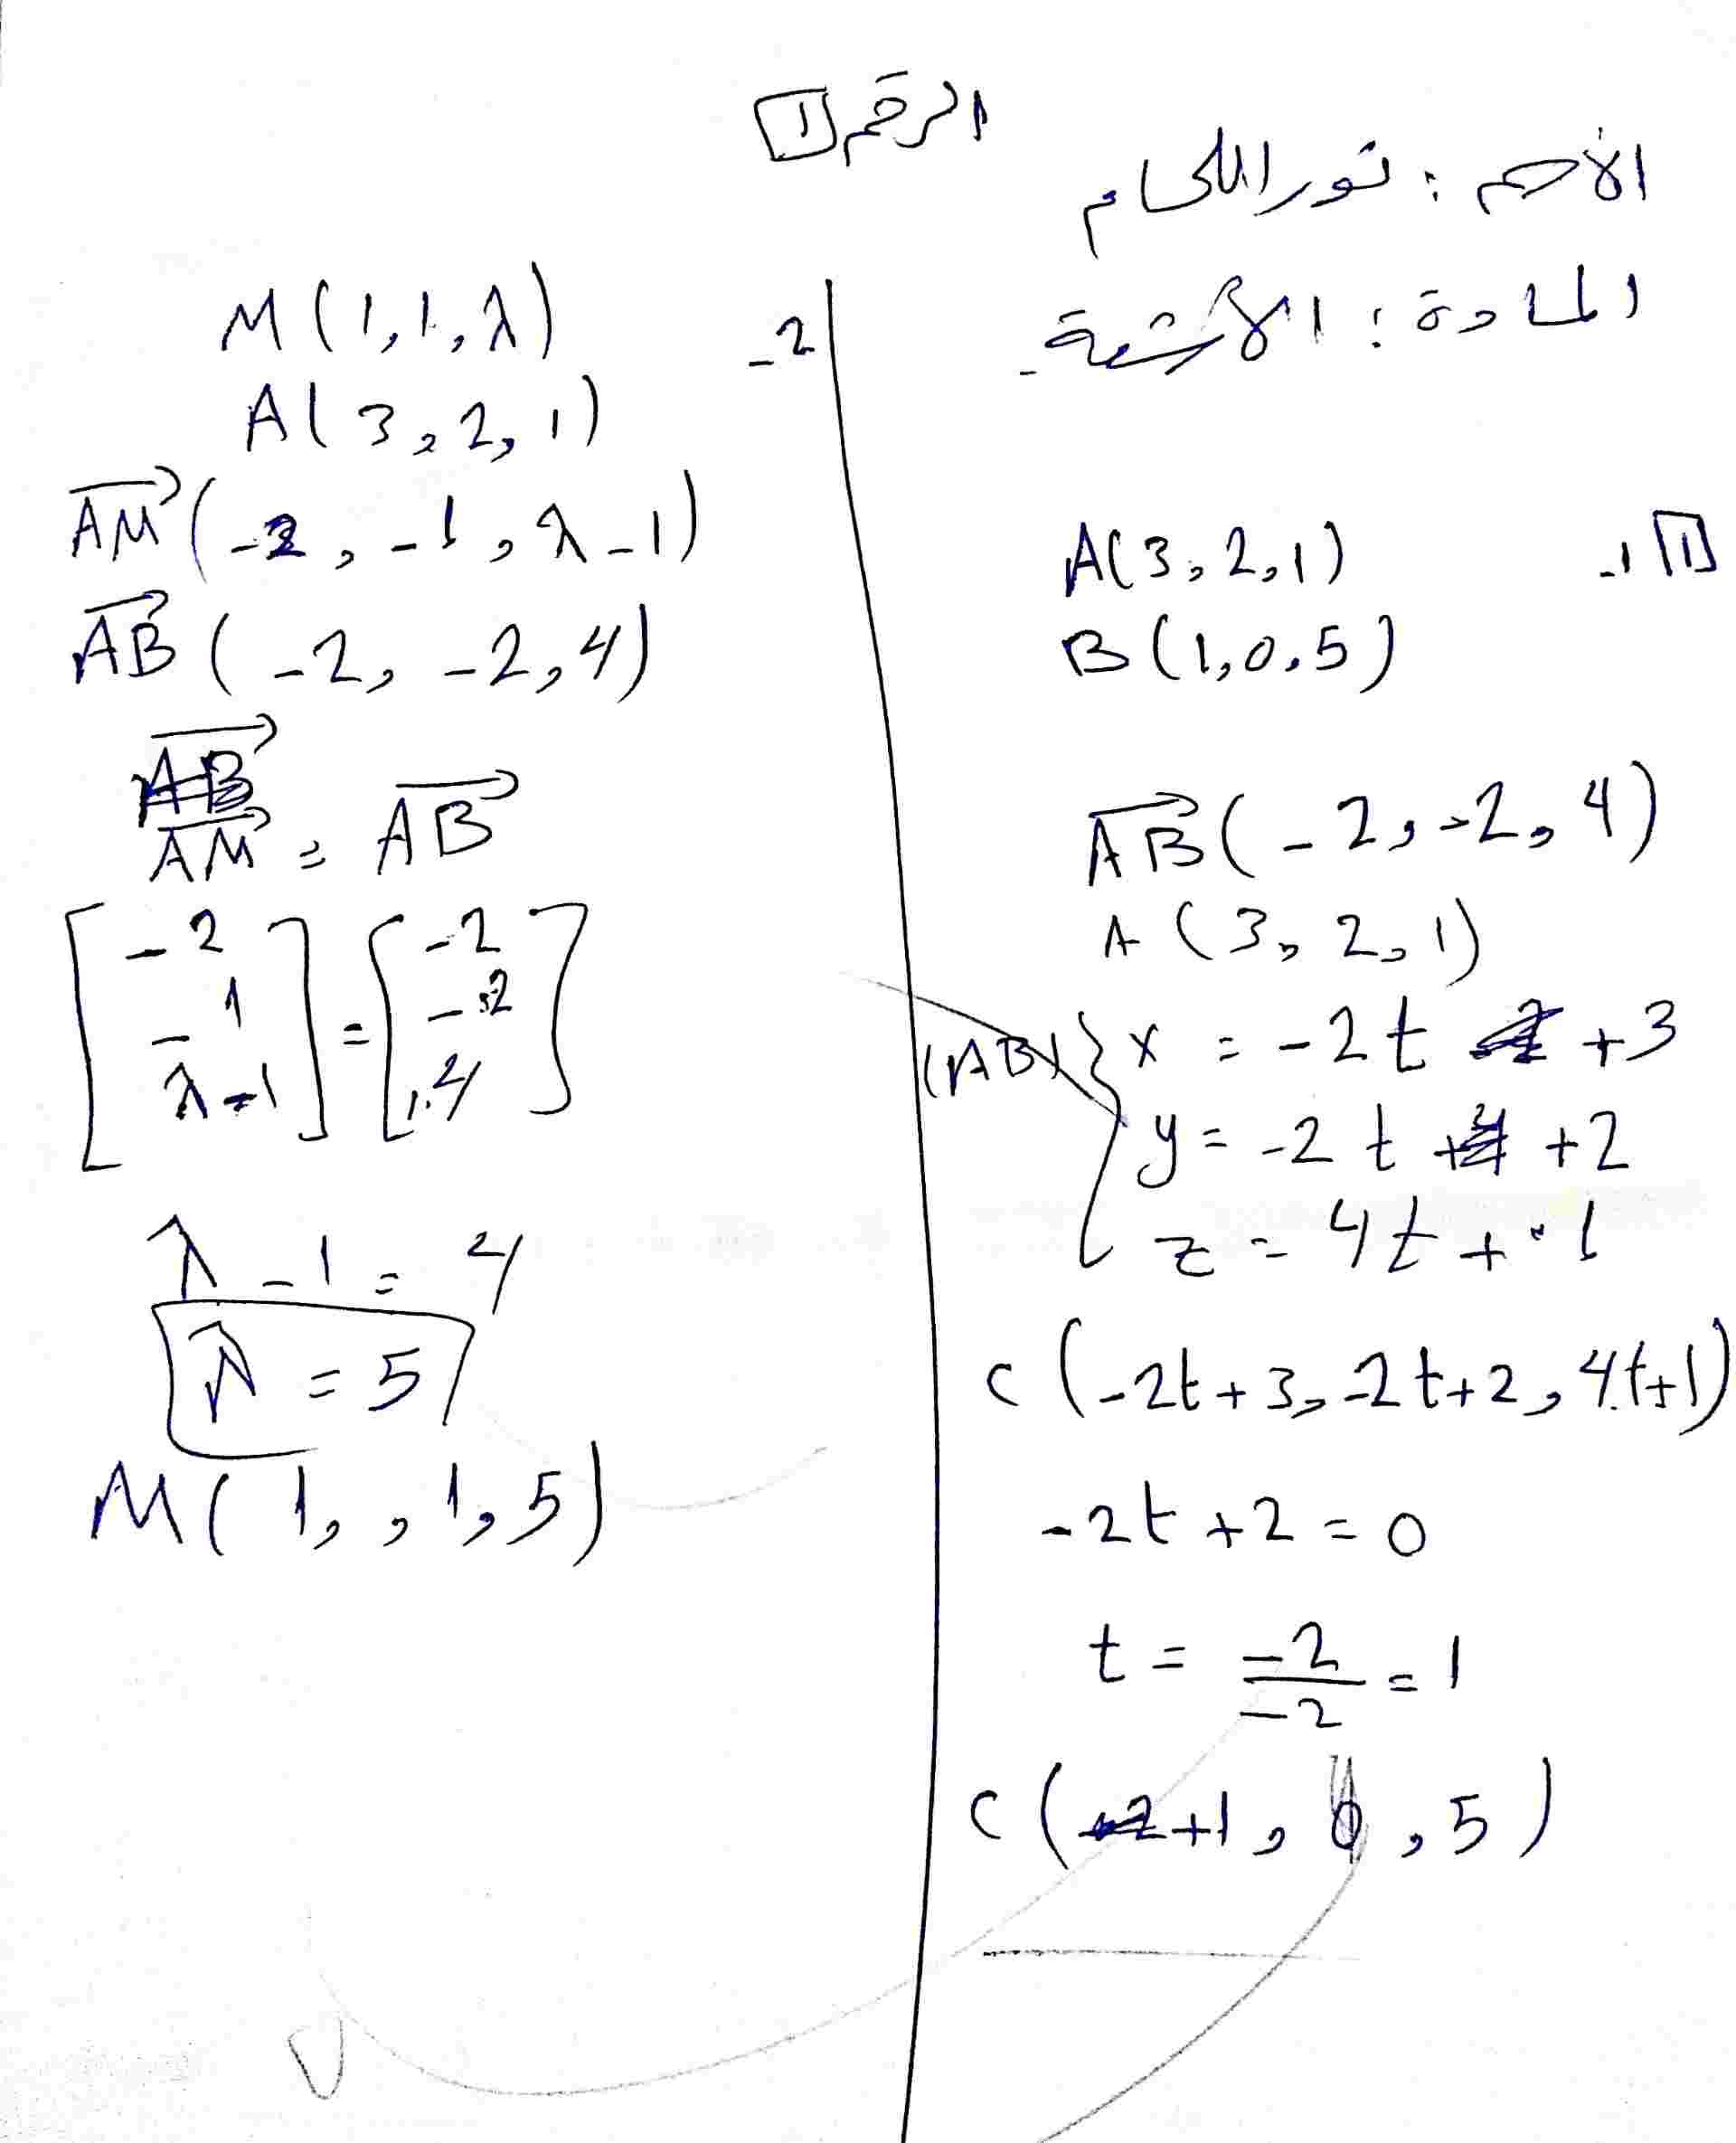 الرقم 1
الاسم : نور اللحام
المادة : الأشعة
1 - 1
A(3, 2, 1)
B(1, 0, 5)
AB(-2, -2, 4)
A(3, 2, 1)
(AB) { x = -2t +3
y = -2t +2
z = 4t + 1
C(-2t+3, -2t+2, 4t+1)
-2t +2 = 0
t = -2/-2 = 1
C(+1, 0, 5)
2 -
M(1, 1, λ)
A(3, 2, 1)
AM(-2, -1, λ-1)
AB(-2, -2, 4)
AB
AM = AB
[-2 -1 λ-1] = [-2 -2 4]
λ - 1 = 4
λ = 5
M(1, , 1, 5)